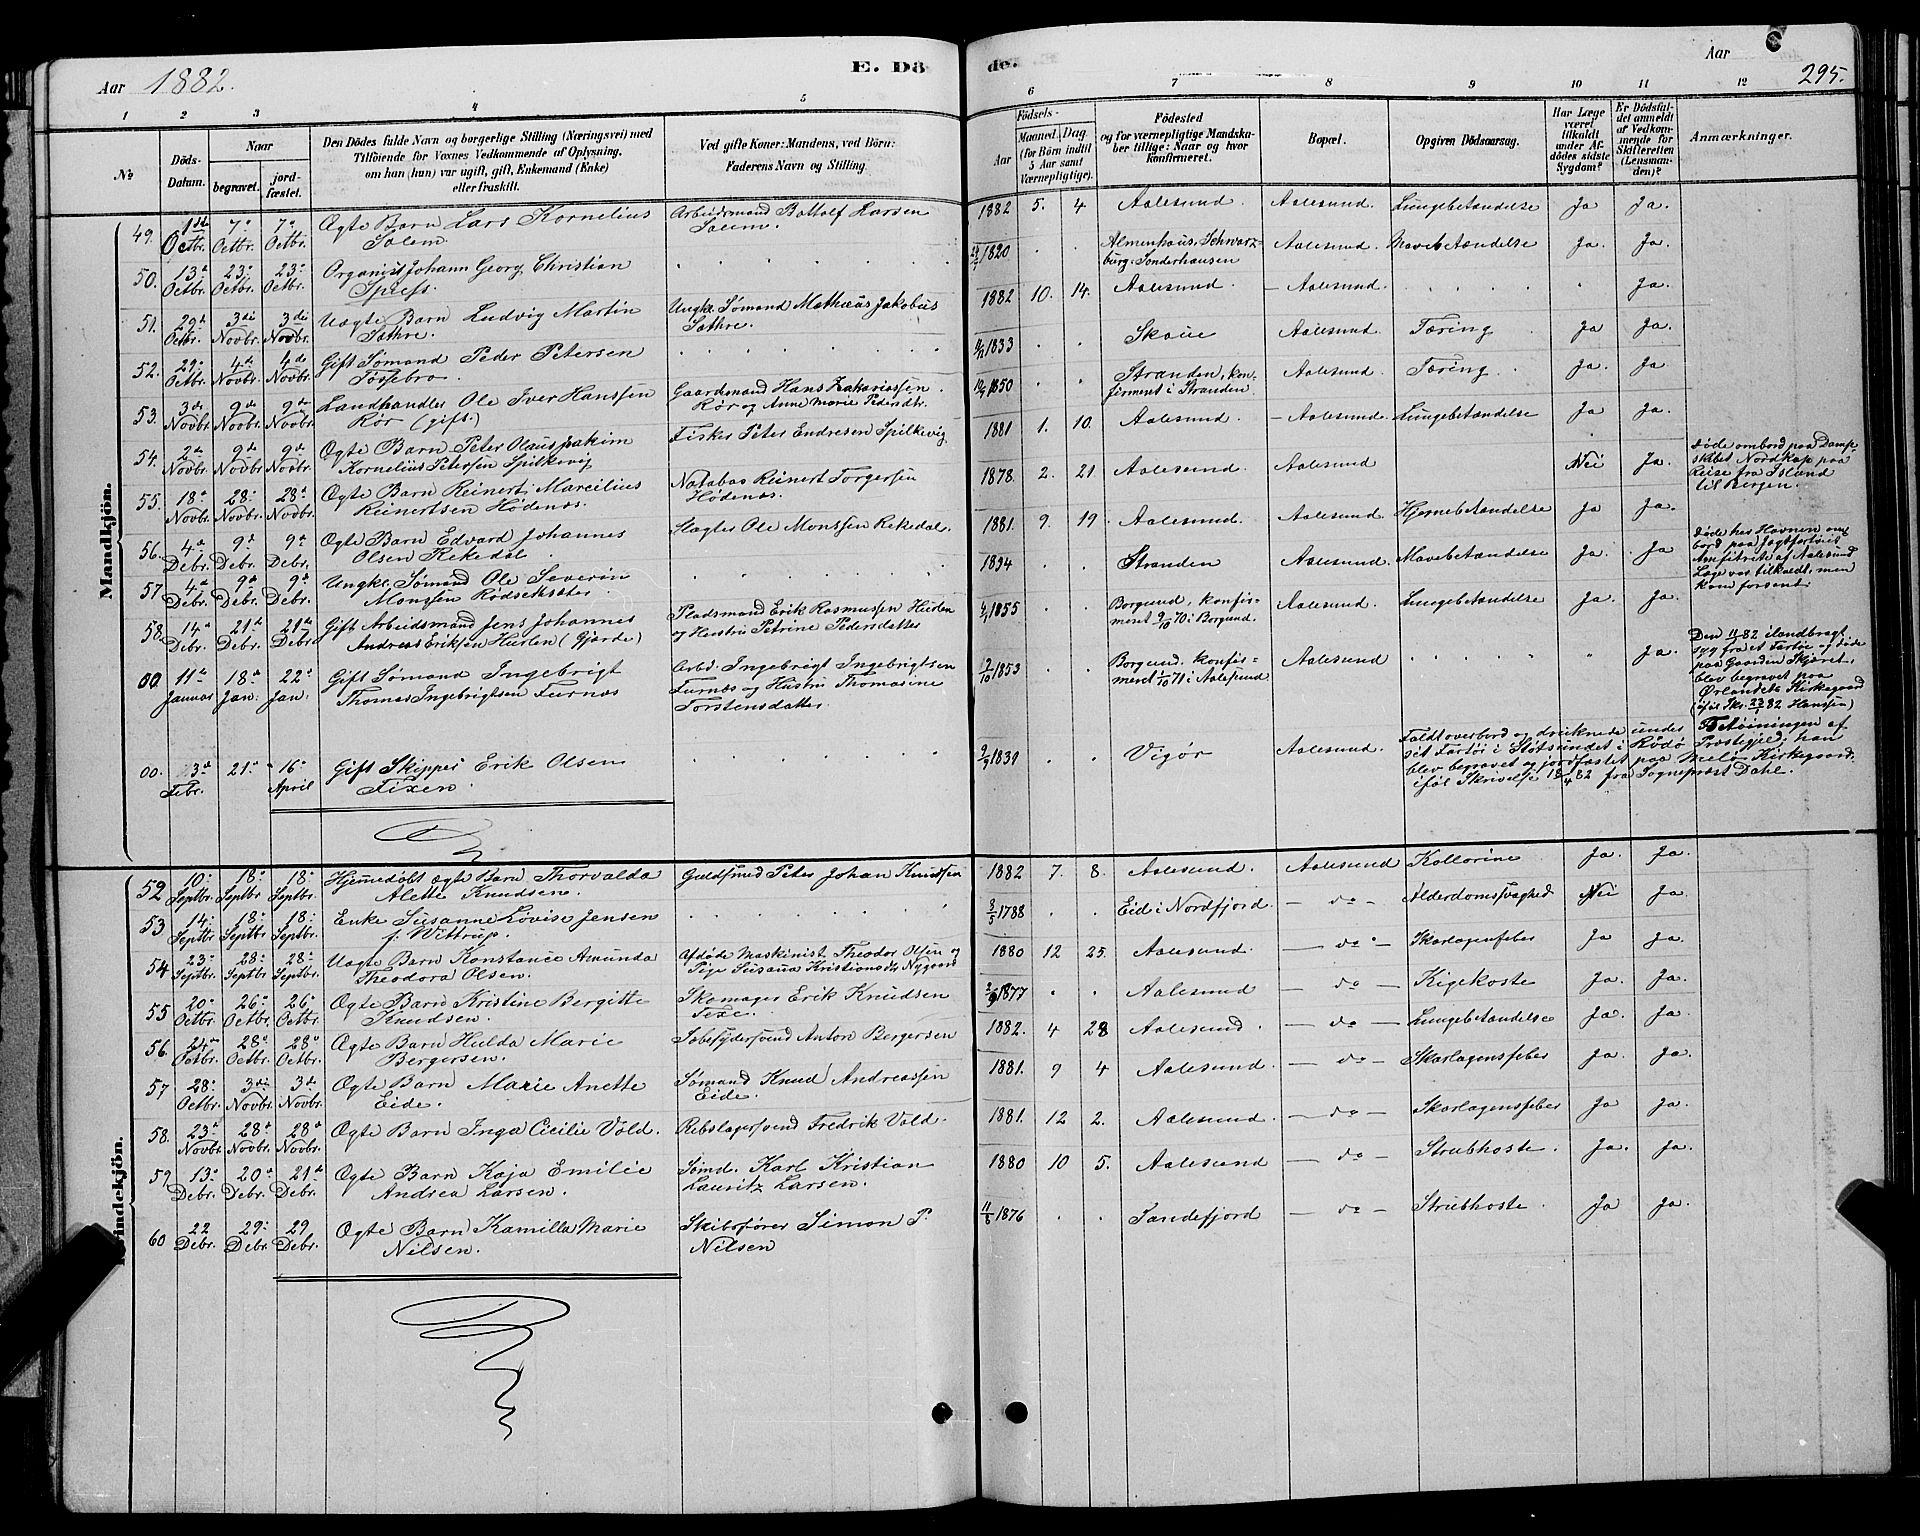 Aar 1882.
E. Dö
1 2 3 4 5
No
Döds-Datum.
Naar
begravet.
jord-fæstet.
Den Dödes fulde Navn og borgerlige Stilling (Næringsvei) med
Tilföiende for Voxnes Vedkommende af Oplysning,
om han (hun) var ugift, gift, Enkemand (Enke)
eller fraskilt.
Ved gifte Koner: Mandens, ved Börn:
Faderens Navn og Stilling.
Mandkjön.
49. 1ste Octbr. 7de Octbr. 7de Octbr. Ægte Barn Lars Kornelius Solem. Arbeidsmand Bottolf Larsen Solem.
50. 13de Octbr. 23de Octbr. 23de Octbr. Organist Johann Georg Christian
51. Octbr. 3die Novbr. 3die Novbr. Uægte Barn Ludvig Martin Sathre. Ungk. Sømand Mathias Jakobus Sathre.
52. 29de Octbr. 4de Novbr. 4de Novbr. Gift Sømand Peder Petersen Fossebro.
53. 3die Novbr. 9de Novbr. 9de Novbr. Landhandler Ole Iver Hanssen Rør (gift) Gaardmand Hans Zakariassen Rør og Anne Marie Pedersdtr.
54. 2den Novbr. 9de Novbr. 9de Novbr. Ægte Barn Peter Olaus Joakim Kornelius Petersen Spilkevig Fisker Peter Endresen Spilkevig
55. 18de Novbr. 28de Novbr. 28de Novbr. Ægte Barn Reinert Marcilius Reinertsen Hødenæs. Reinert Torgersen Hødenæs.
56. 4de Debr. 9de Debr. 9de Debr. Ægte Barn Edvard Johannes Olsen Rekedal. Slagter Ole Monssen Rekedal.
57. 4de Debr. 9de Debr. 9de Debr. Ungk. Sømand Ole Severin Monssen Rødseksæter.
58. 14de Debr. 21de Debr. 21de Debr. Gift Arbeidsmand Jens Johannes Andreas Eriksen Hurlen (Gjørde) Pladsmand Erik Rasmussen Hurlen og Hustru Petrine Pedersdatter
00. 11te Januar 18de Jan. 22de Jan. Gift Sømand Ingebrigt Thomas Ingebrigtsen Furnæs Arbd. Ingebrigt Ingebrigtsen Furnæs og Hustru Thomasine Torstensdatter.
00. Febr. 21de 16de April Gift Skipper Erik Olsen Fixen.
Kvindekjön.
52 10de Septbr. 18de Septbr. 18de Septbr. Hjemedøbt ægte Barn Thorvalda Alette Knudsen. Guldsmed Peter Johan Knudsen
53 14de Septbr. 18de Septbr. 18de Septbr. Enke Susanne Lovise Jensen f. Wittrup.
54 23de Septbr. 28de Septbr. 28de Septbr. Uægte Barn Konstanse Amunda Theodora Olsen. Afdøde Maskinist Theodor Olsen og Pige Susana Kristiansdtr Nygaard
55 20de Octbr. 26de Octbr. 26de Octbr. Ægte Barn Kristine Bergitte Knudsen. Skomager Erik Knudsen Fixe.
56. 24de Octbr. 28de Octbr. 28de Octbr. Ægte Barn Hulda Marie Bergersen. Anton Bergersen
57 28de Octbr. 3die Novbr. 3die Novbr. Ægte Barn Marie Anette Eide. Sømand Knud Andreassen Eide.
58. 23de Novbr. 28de Novbr. 28de Novbr. Ægte Barn Inga Cicilie Vold. Rebslagersvend Fredrik Vold.
59. 13de Debr. 20de Debr. 21de Debr. Ægte Barn Kaja Emilie Andrea Larsen. Sømd. Karl Kristian Lauritz Larsen.
60 22 Debr. 29de Debr. 29. Debr. Ægte Barn Kamilla Marie Nilsen. Skibsfører Simon P. Nilsen
de.
Aar
295.
6 7 8 9 10 11 12
Födsels-
Aar
Maaned. Dag.
(for Börn indtil 5 Aar samt Værnepligtige).
Födested
og for værnepligtige Mandska-
ber tillige: Naar og hvor
konfirmeret.
Bopæl.
Opgiven Dödsaarsag.
Har Læge været tilkaldt under Af-dödes sidste Sygdom?
Er Dödsfal-det anmeldt af Vedkom-mende for Skifteretten (Lensman-den)?
Anmærkninger.
1882 5. 4 Aalesund. Aalesund. Lungebetændelse Ja Ja.
1820 Almenhaus, Schwarzburg-Sonderhausen Aalesund Mavebetændelse Ja. Ja.
1882 10. 14. Aalesund. Aalesund. Ja.
1833 Skoue Aalesund Tæring Ja Ja.
1850 Stranden, konfirmeret i Stranden Aalesund. Tæring Ja. Ja
1881 1. 10. Aalesund. Aalesund. Lungebetændelse Ja Ja.
1878. 2. 21. Aalesund. Aalesund Nei Ja. Døde ombord paa Dampskibet Nordkap paa Reise fra Island til Bergen.
1881. 9. 19. Aalesund. Aalesund. Hjernebetændelse Ja Ja.
1834 Stranden Aalesund. Mavebetændelse Ja. Ja Døde her Havnen ombord paa Jagtfartøiet Amfitrite af Aalesund Læge var tilkaldt, men kom forsent.
4/1 1855 Borgund, konfirmeret 9/10 70 i Borgund. Aalesund. Lungebetændelse Ja. Ja.
12/10 1853 Borgund. konfirmeret 1/10 71 i Aalesund Aalesund Ja. Den 11/1 82 ilandbragt syg fra et Fartøi og døde paa Gaarden Skjæret, blev begravet paa Ørlandets Kirkegaard (iføl. Skr. 22/1 82 Hanssen)
9/9 1839 Vigør Aalesund. Faldt overbord og druknede under Fortøiningen af sit Fartøi i Støtsundet i Rødø Prestegjeld; han blev begravet og jordfæstet paa Melø Kirkegaard, iføl Skrivelse 18/4 82 fra Sogneprest Dahl.
1882 7. 8. Aalesund. Aalesund Kollorine Ja. Ja.
3/5 1788 Eid i Nordfjord. — do — Alderdomssvaghed Nei Ja
1880 12 25. Aalesund. — do — Skarlagensfeber Ja Ja.
2/9 1877 Aalesund — do — Kigekoste Ja. Ja.
1882. 4 28 Aalesund. — do — Lungebetændelse Ja. Ja.
1881. 9 4 Aalesund. — do — Skarlagensfeber Ja. Ja.
1881. 12 2. Aalesund. — do — Skarlagensfeber Ja Ja.
1880 10 5. Aalesund — do — Strubhoste. Ja. Ja.
11/6 1876 Sandefjord — do — Strubhoste. Ja Ja.